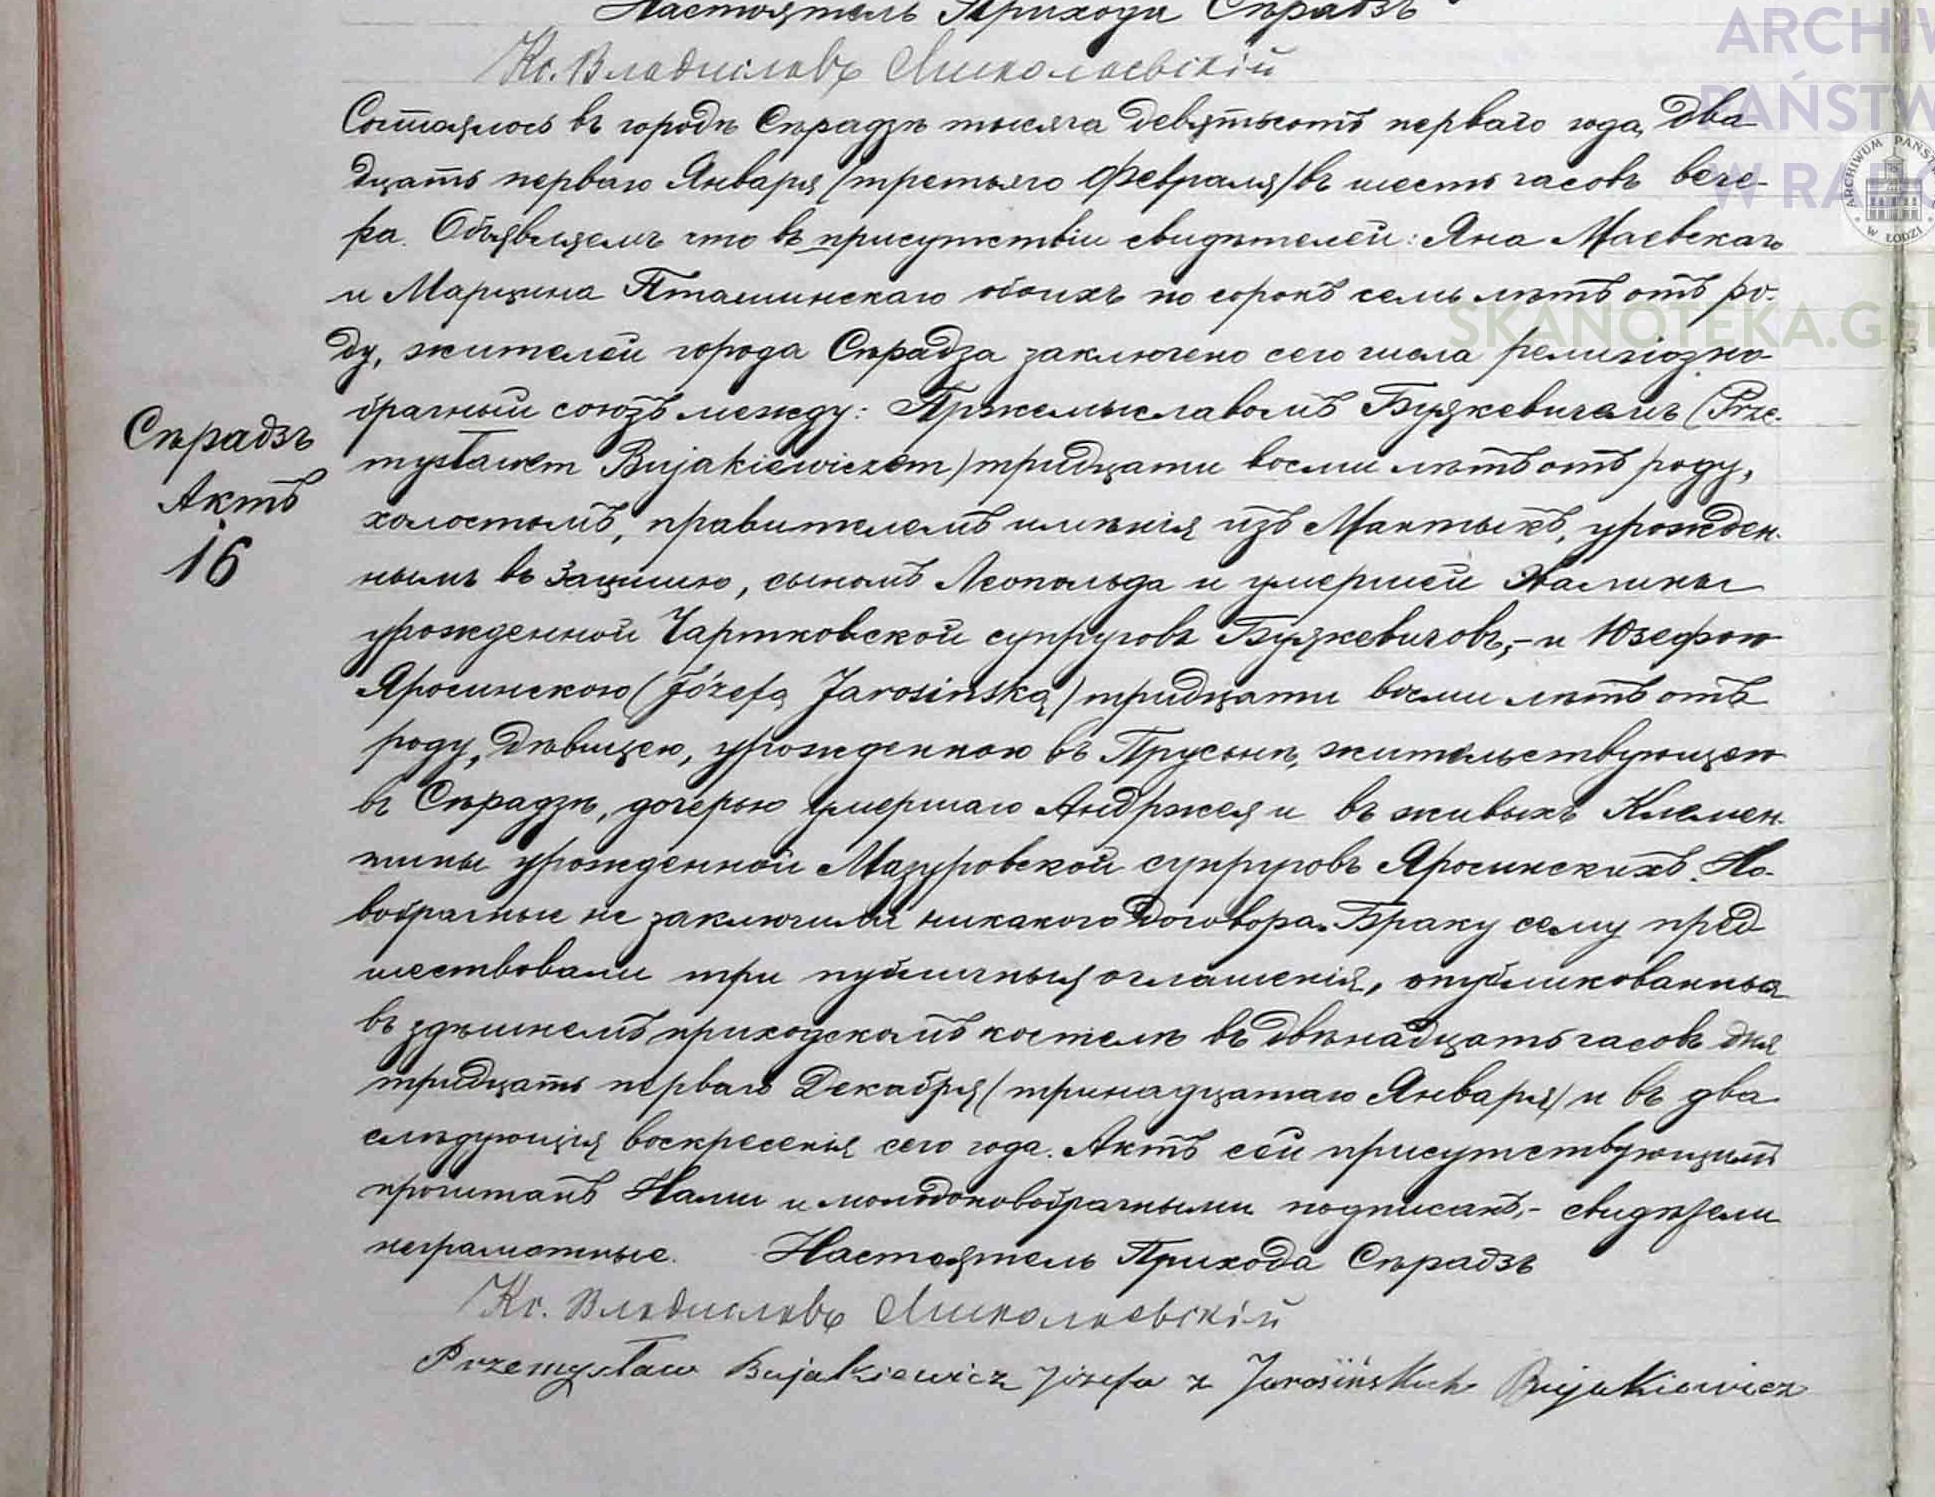 Настоятель Прихода Сѣрадзъ
Кс. Владиславъ Миколаевскій
Состоялось въ городѣ Сѣрадзѣ тысяча девятьсотъ перваго года, два-
дцать перваго Января (третьяго Февраля) въ шесть часовъ вече-
ра. Объявляемъ что въ присутствіи свидѣтелей: Яна Маевскаго
и Марцина Пташинскаго обоихъ по сорокъ семь лѣтъ отъ ро-
ду, жителей города Сѣрадза заключено сего числа религіозно-
брачный союзъ между: Пржемыславомъ Буякевичемъ (Prze-
mysławem Bujakiewiczem) тридцати восьми лѣтъ отъ роду,
холостымъ, правителемъ имѣнія изъ Мантыкъ, урожден-
нымъ въ Зацишю, сыномъ Леопольда и умершей Эвалины
урожденной Чартковской супруговъ Буякевичовъ,- и Юзефою
Яросинскою (Józefą Jarosińską) тридцати восьми лѣтъ отъ
роду, дѣвицею, урожденною въ Прусынѣ, жительствующею
въ Сѣрадзѣ, дочерью умершаго Андржея и въ живыхъ Клемен-
тины урожденной Мазуровской супруговъ Яросинскихъ. Но-
вобрачные не заключили никакого договора. Браку сему пред
шествовали три публичныя оглашенія, опубликованныя
въ здѣшнемъ приходскомъ костелѣ въ двѣнадцать часовъ дня
тридцать перваго Декабря (тринадцатаго Января) и въ два
слѣдующія воскресенія сего года. Актъ сей присутствующимъ
прочитанъ Нами и молодоновобрачными подписанъ,- свидѣтели
неграмотные. Настоятель Прихода Сѣрадзъ
Кс. Владиславъ Миколаевскій
Przemysław Bujakiewicz Józefa z Jarosińskich Bujakiewicz
Сѣрадзъ
Актъ
16
ARCHIW
PAŃSTW
W RA
SKANOTEKA.GE
ARCHIWUM PAŃST
W ŁODZI